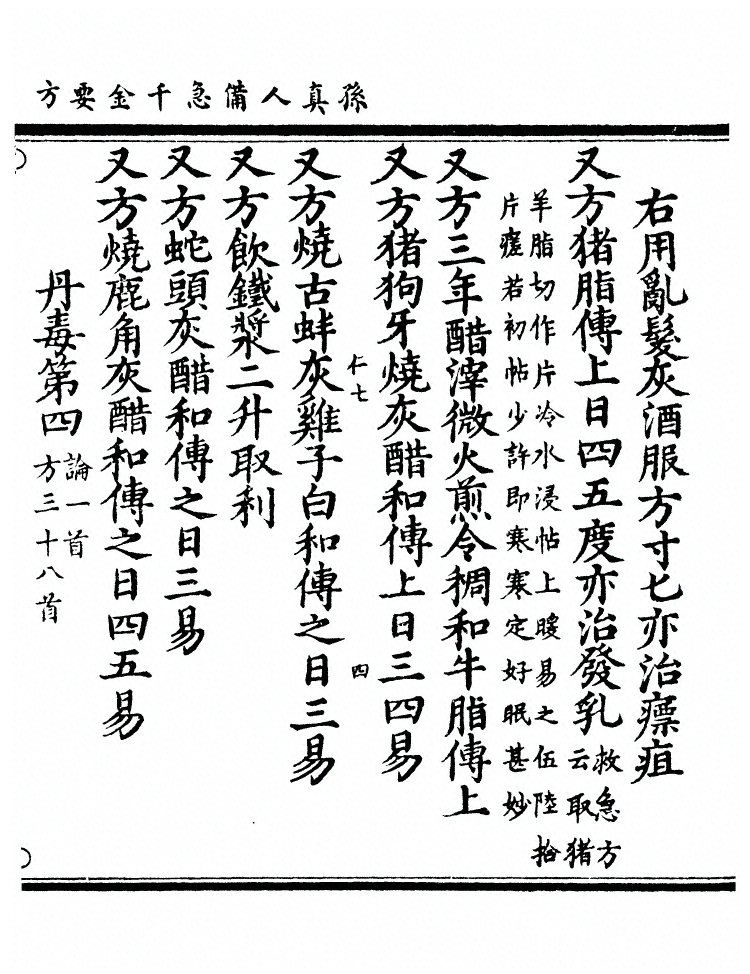 孫真人備急千金要方
右用亂髮灰酒服方寸匕亦治瘭疽
又方猪脂傅上日四五度亦治發乳救急方
云取猪
羊脂切作片冷水浸帖上暖易之伍陸拾
片瘥若初帖少許即寒寒定好眠甚妙
又方三年醋滓微火煎令稠和牛脂傅上
又方猪狗牙燒灰醋和傅上日三四易
仁七
四
又方燒古蚌灰雞子白和傅之日三易
又方飲鐵漿二升取利
又方蛇頭灰醋和傅之日三易
又方燒鹿角灰醋和傅之日四五易
丹毒第四論一首
方三十八首